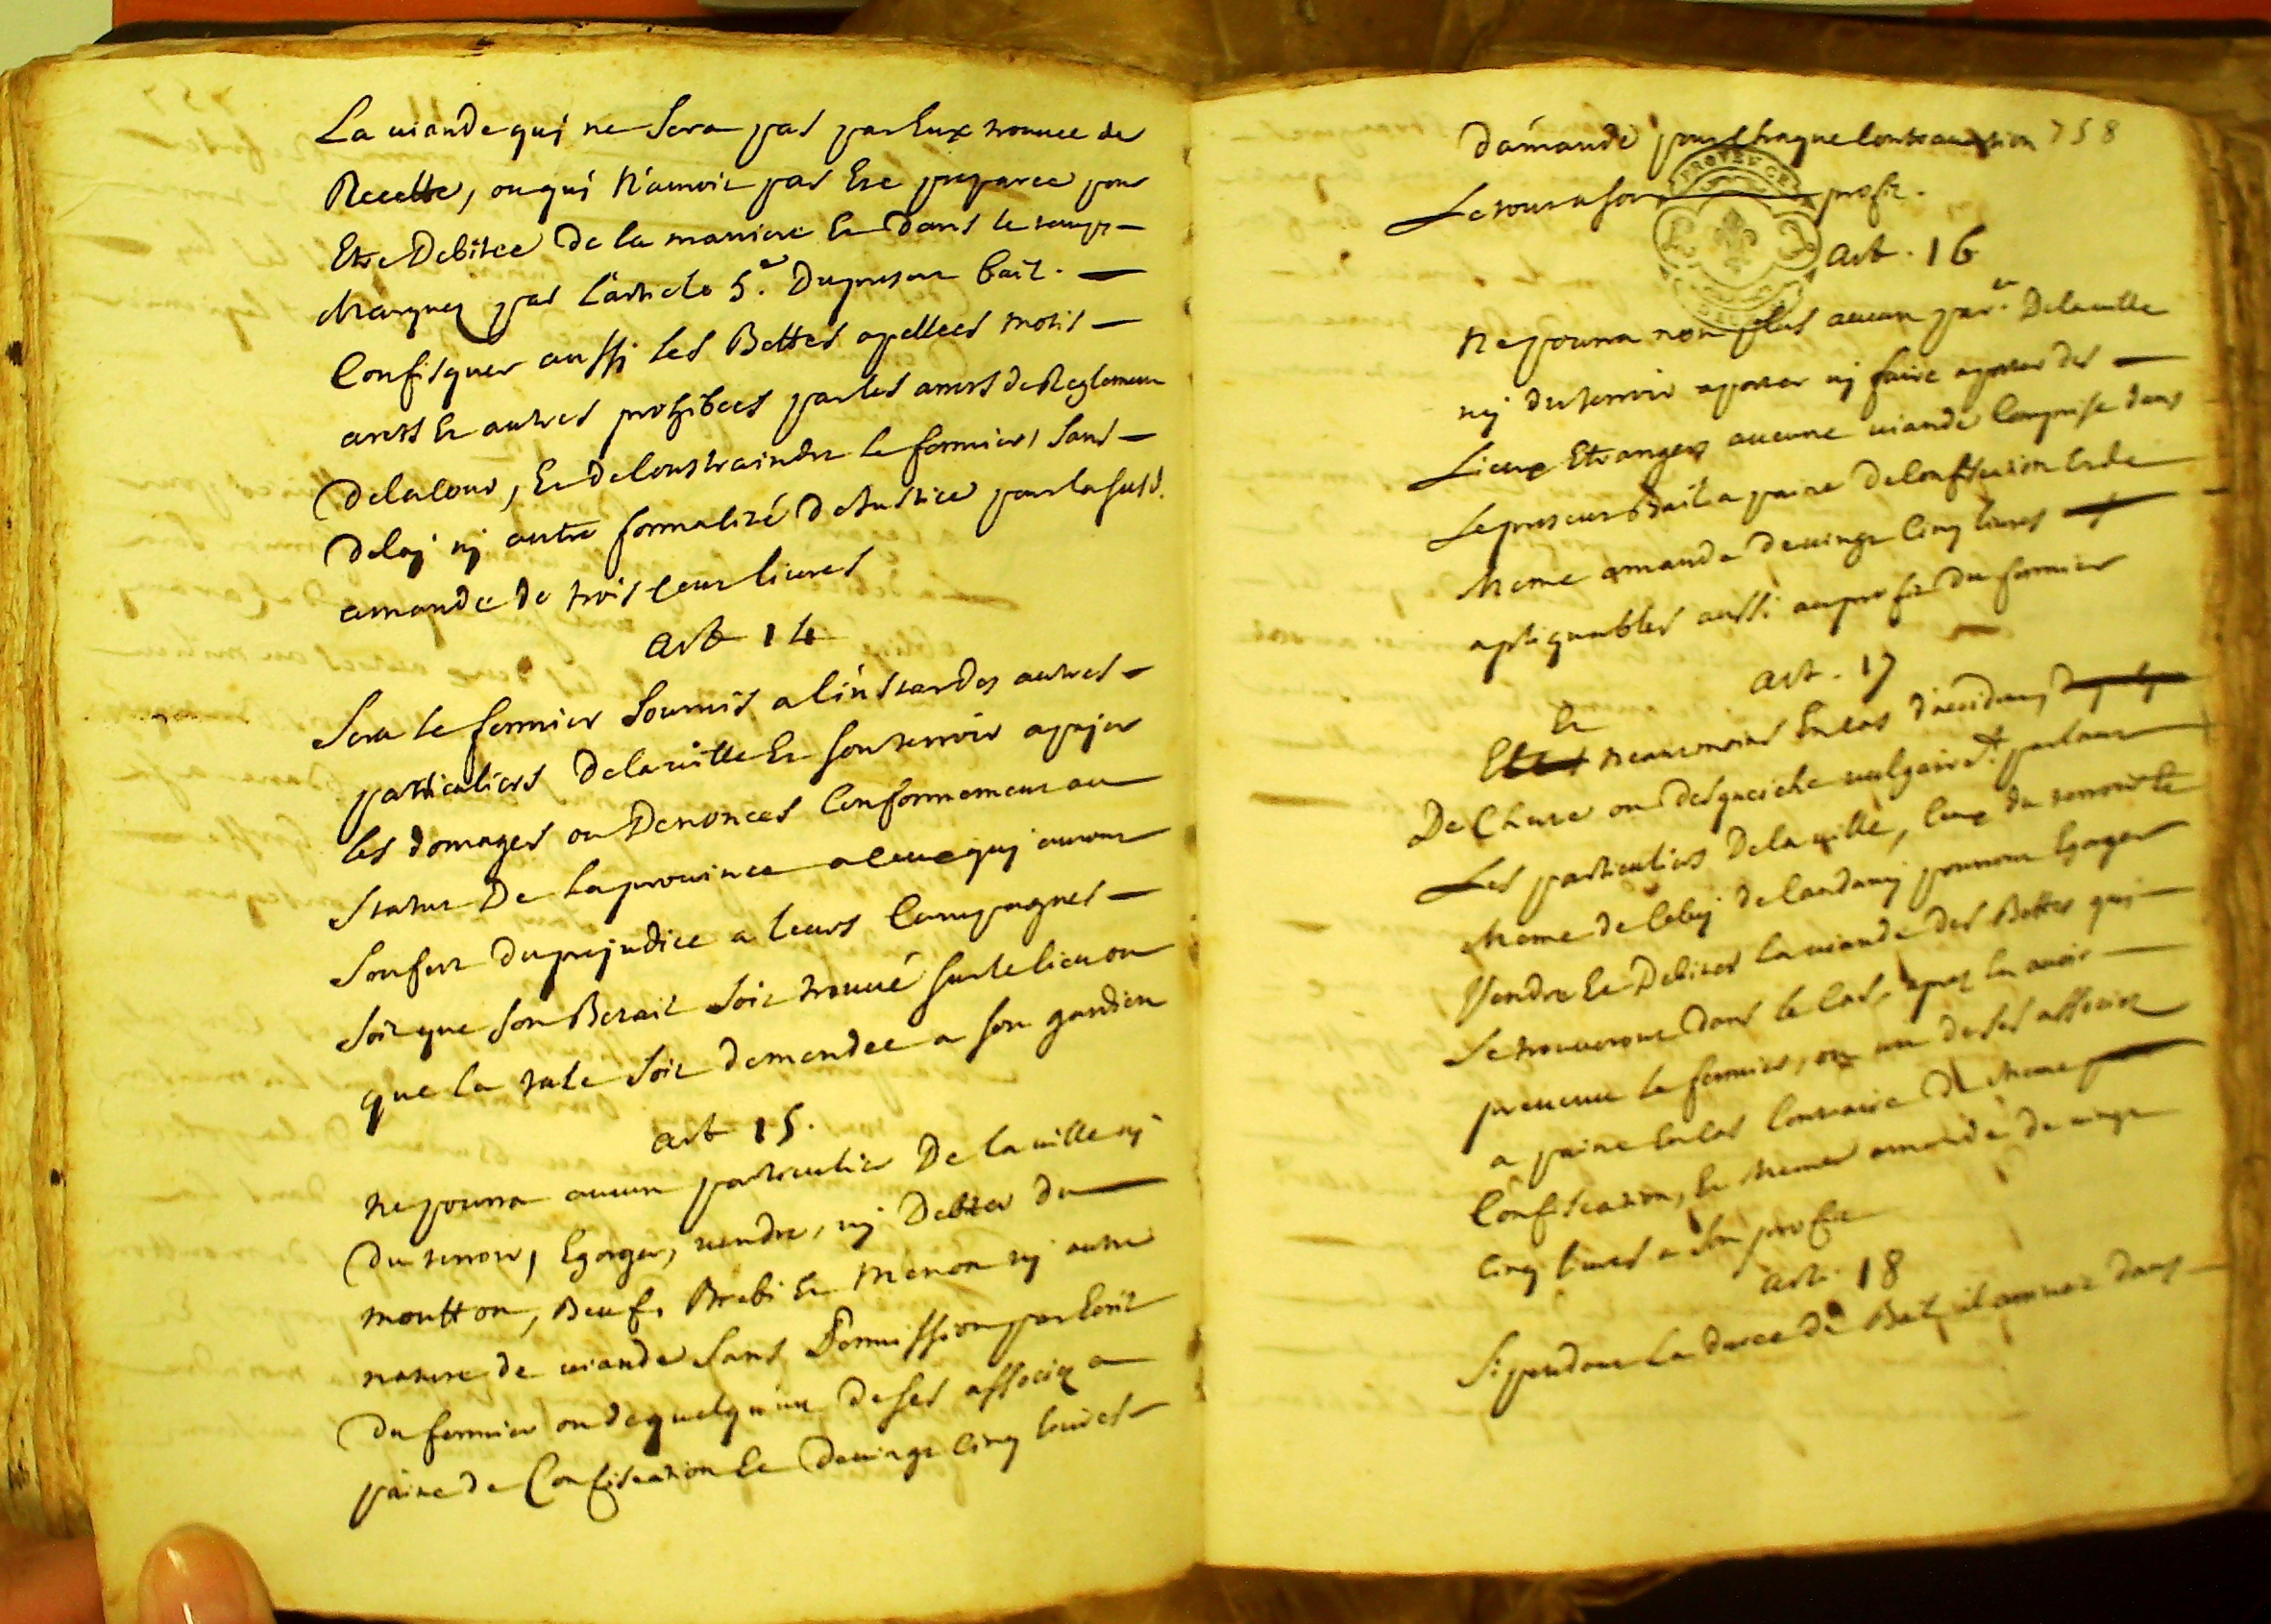 La viande quj ne sera pas par Eux trouvee de
Recette, ou quj N'auroit pas Ete preparee pour
Etre Debitee De la maniere Et Dans le temps
Marquez par L'article 5.e Du present bail.
Confisquer aussj les Bettes apellees
arets Et autres prohibees par les arrets de Reglement
De la Cour, Et de Contraindre le fermier, sans
Delaj nj autre formalité De Justice pour la susd.
amande de trois Cent livres
art 14
Sera le fermier soumis a l'instar des autres
particuliers De la ville Et son terroir a payer
les domages ou Denonces Conformement au
Statut De la province a ceux quj auront
soufert Du prejudice a leurs Campagnes
soit que son Betail soit trouvé sur le lieu ou
que la tale soit demendee a son gardien
art 15.
Ne pourra aucun particulier De la ville nj
Du terroir, Egorger, vendre, nj Debiter du
moutton, Beuf, Brebi Et Menon nj autre
nature de viande sans Permission par Ecrit
Du fermier ou de quelqu'un De ses associez a
paine de Confiscation Et De vingt cinq livres
D'amande pour Chaque Contravention 758
Le tout a son profit.
art. 16
Ne pourra non plus aucun par.er De la ville
nj du terroir aporter nj faire aporter des
Lieux Etrangers aucune viande Comprise dans
Le present Bail a paine De Confiscation Et de
Meme amande De vingt Cinq livres
apliquables aussi au profit Du fermier
art. 17
Et
neanmoins En Cas d'accidant
De Chute ou des vulgairem.t parlant
Les particuliers De la ville, Ceux du terroir Et
Meme de Celuj de pourront Egorger
Vendre Et Debiter la viande des Bettes quj
se trouveront Dans le Cas, apres En avoir
prevenu le fermier, ou un de ses associez
a paine En Cas Contraire De Meme
Confiscation, Et Meme amende de vingt
cinq livres a son profit
art. 18
Si pendant La duree du Bail il arrivoit Dans